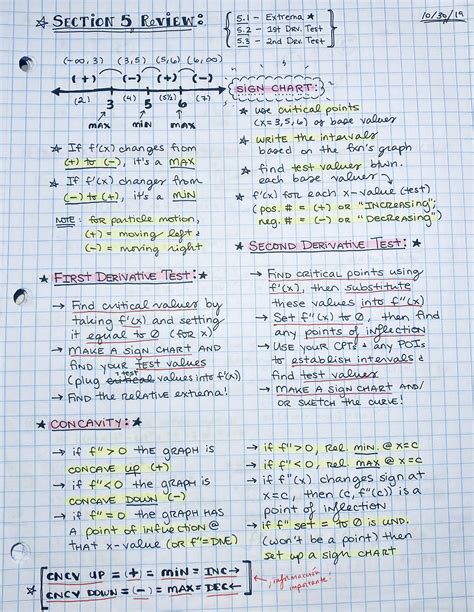 ☆ SECTION 5 REVIEW:
5.1 - Extrema ★
5.2 - 1st Drv. Test
5.3 - 2nd Drv. Test
10/30/19
(-∞, 3) (3,5) (5,6) (6,∞)
(+) (-) (+) (-)
(2) 3 (4) 5 (5½) 6 (7)
MAX MIN MAX
★ If f'(x) changes from
(+) to (-), it's a MAX
★ If f'(x) changes from
(-) to (+), it's a MIN
NOTE: for particle motion,
(+) = moving left &
(-) = moving right
SIGN CHART:
★ use critical points
(x=3,5,6) as base values
★ WRITE the intervals
based on the fxn's graph
★ find test values btwn.
each base value
★ f'(x) for each x-value (test)
(pos. # = (+) or "INCREASING";
neg. # = (-) or "DECREASING")
★ FIRST DERIVATIVE TEST: ★
→ Find critical values by
taking f'(x) and setting
it equal to 0 (for x)
→ MAKE A SIGN CHART AND
FIND YOUR TEST VALUES
(plug critical test values into f'(x))
→ FIND the relative extrema!
★ SECOND DERIVATIVE TEST: ★
→ FIND critical points using
f'(x), then substitute
these values into f"(x)
→ Set f"(x) to 0, then find
any points of inflection
→ USE your CPTs & any POIs
to establish intervals &
find test values
→ MAKE A SIGN CHART AND/
or SKETCH the CURVE!
★ CONCAVITY: ★
→ if f" > 0 the GRAPH IS
CONCAVE UP (+)
→ if f" < 0 the GRAPH IS
CONCAVE DOWN (-)
→ if f" = 0 the GRAPH HAS
A point of INFLECTION @
THAT x-value (OR f"=DNE)
→ if f" > 0, REL. MIN. @ x=c
→ if f" < 0, rel. MAX @ x=c
→ if f"(x) changes sign at
x=c, then (c, f"(c)) is a
point of inflection
→ if f" set = to 0 is UND.
(won't be a point) then
set up a sign CHART
★ CNCV UP = (+) = MIN = INC→
CNCV DOWN = (-) = MAX = DEC←
información importante